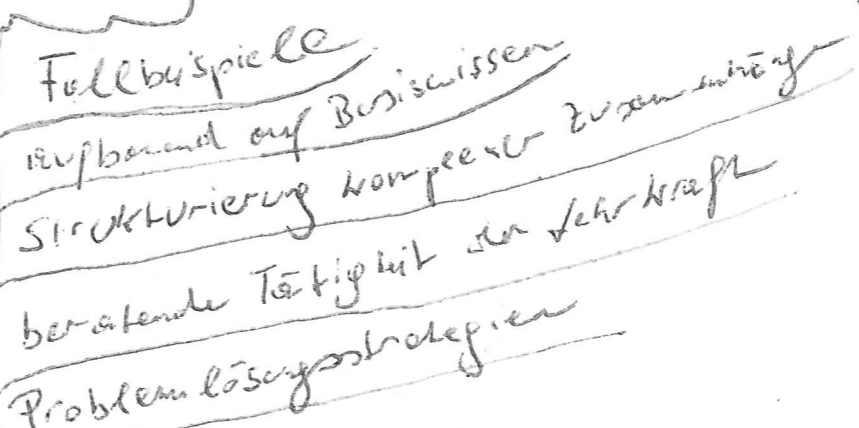 Fallbeispiele
aufbauend auf Basiswissen
Strukturierung komplexer Zusammenhänge
beratende Tätigkeit der Lehrkraft
Problemlösungsstrategien